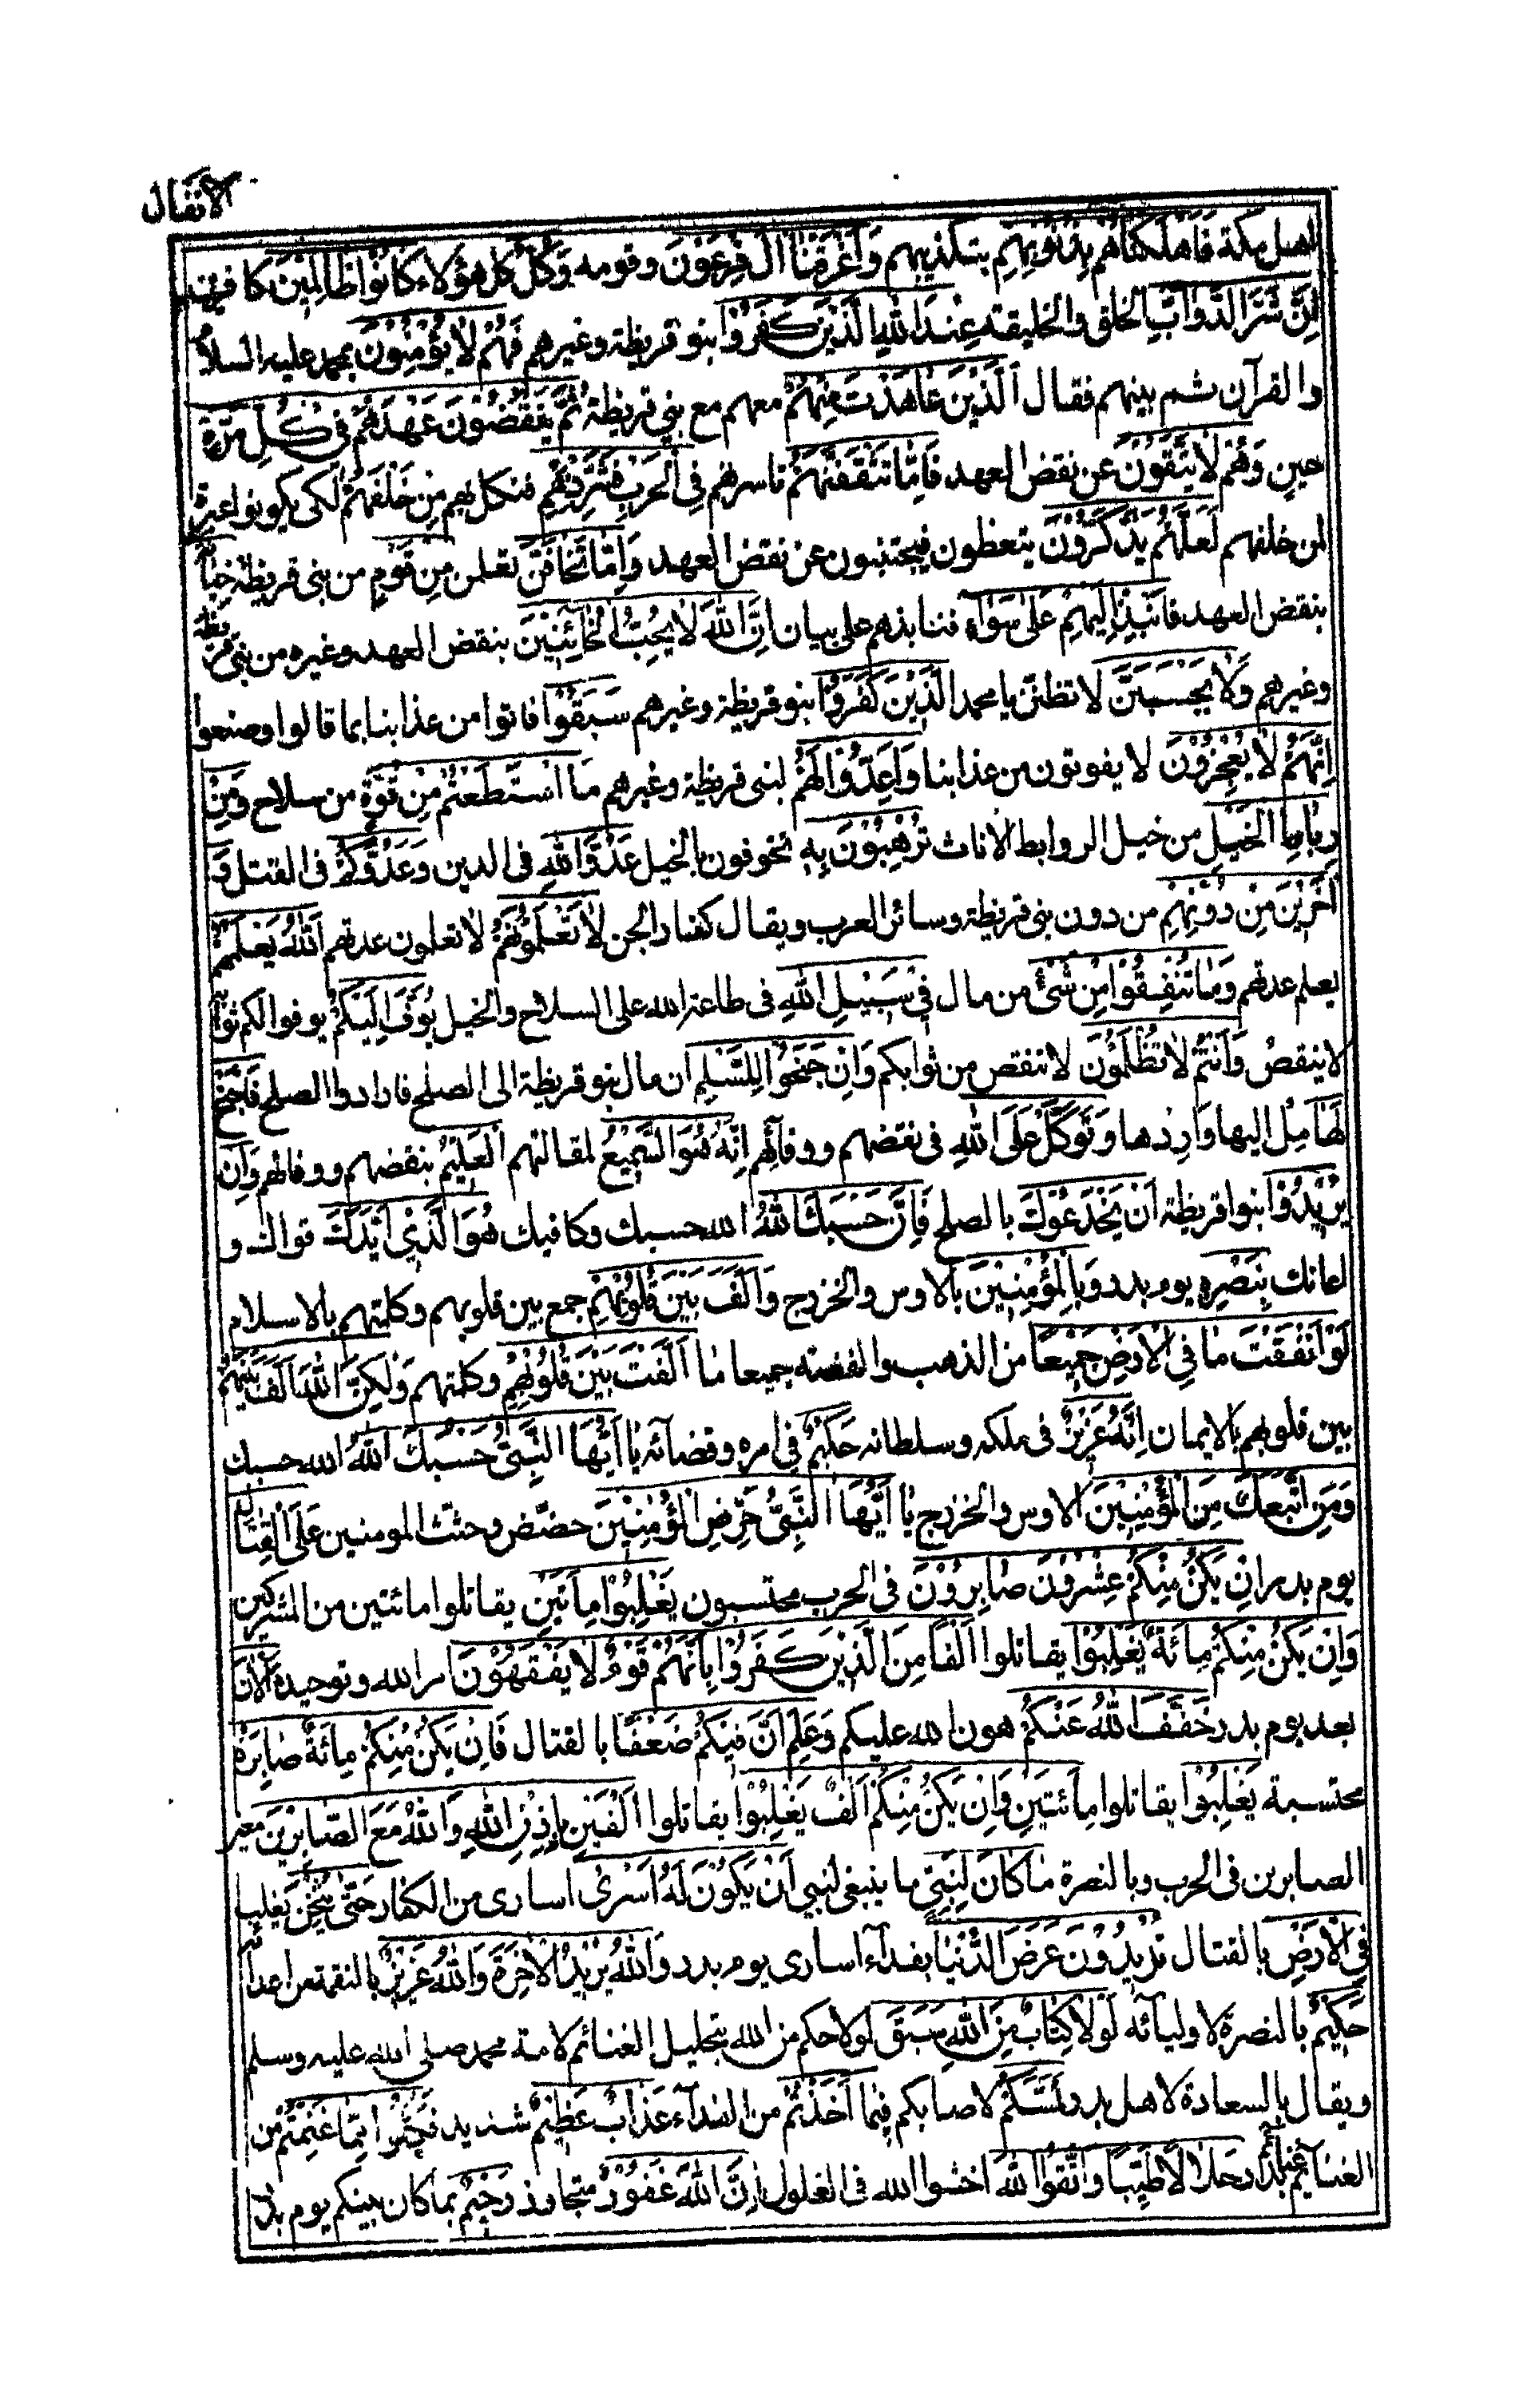 الانفال
اهل مكة فَاَهْلَكْنَاهُمْ بِذُنُوبِهِمْ بتكذيبهم وَاَغْرَقْنَا اٰلَ فِرْعَوْنَ وقومه وَكُلٌّ كل هؤلاء كَانُوا ظَالِمِيْنَ كافرين
اِنَّ شَرَّ الدَّوَابِّ الخلق والخليقة عِنْدَ اللهِ الَّذِيْنَ كَفَرُوْا بنو قريظة وغيرهم فَهُمْ لَا يُؤْمِنُوْنَ بمحمد عليه السلام
والقرآن ثم بينهم فقال اَلَّذِيْنَ عَاهَدْتَ مِنْهُمْ معهم مع بني قريظة ثُمَّ يَنْقُضُوْنَ عَهْدَهُمْ فِى كُلِّ مَرَّةٍ
حين وَهُمْ لَا يَتَّقُوْنَ عن نقض العهد فَاِمَّا تَثْقَفَنَّهُمْ تاسرهم فِى الْحَرْبِ فَشَرِّدْ بِهِمْ فنكل بهم مِنْ خَلْفَهُمْ لكى يكونوا عبرة
لمن خلفهم لَعَلَّهُمْ يَذَّكَّرُوْنَ يتعظون فيجتنبون عن نقض العهد وَاِمَّا تَخَافَنَّ تعلمن مِنْ قَوْمٍ من بنى قريظة خِيَانَةً
بنقض العهد فَانْبِذْ اِلَيْهِمْ عَلٰى سَوَآءٍ فنابذهم على بيان اِنَّ اللهَ لَا يُحِبُّ الْخَآئِنِيْنَ بنقض العهد وغيره من بنى قريظة
وغيرهم وَلَا يَحْسَبَنَّ لا تظنن يا محمد الَّذِيْنَ كَفَرُوْا بنو قريظة وغيرهم سَبَقُوْا فاتوا من عذابنا بما قالوا وصنعوا
اِنَّهُمْ لَا يُعْجِزُوْنَ لا يفوتون من عذابنا وَاَعِدُّوْا لَهُمْ لبنى قريظة وغيرهم مَا اسْتَطَعْتُمْ مِنْ قُوَّةٍ من سلاح وَمِنْ
رِبَاطِ الْخَيْلِ من خيل الروابط الاناث تُرْهِبُوْنَ بِهِ تخوفون بالخيل عَدُوَّ اللهِ فى الدين وَعَدُوَّكُمْ فى القتل وَ
اٰخَرِيْنَ مِنْ دُوْنِهِمْ من دون بنى قريظة وسائر العرب ويقال كفار الجن لَا تَعْلَمُوْنَهُمْ لا تعلمون عدتهم اَللهُ يَعْلَمُهُمْ
يعلم عدتهم وَمَا تُنْفِقُوْا مِنْ شَئٍ من مال فِى سَبِيْلِ اللهِ فى طاعة الله على السلاح والخيل يُوَفَّ اِلَيْكُمْ يوفر الكم ثوابه
لا ينقص وَاَنْتُمْ لَا تُظْلَمُوْنَ لا تنقص من ثوابكم وَاِنْ جَنَحُوْا لِلسَّلْمِ ان مال بنو قريظة الى الصلح فارادوا الصلح فَاجْنَحْ
لَهَا مِل اليها وارِدْها وَتَوَكَّلْ عَلَى اللهِ فى نقضهم ووفآئهم اِنَّهُ هُوَ السَّمِيْعُ لمقالتهم الْعَلِيْمُ بنقضهم ووفائهم وَاِنْ
يُرِيْدُوْا بنو قريظة اَنْ يَخْدَعُوْكَ بالصلح فَاِنَّ حَسْبَكَ اللهُ الله حسبك وكافيك هُوَ الَّذِيْ اَيَّدَكَ قواك و
اعانك بِنَصْرِهِ يوم بدر وَبِالْمُؤْمِنِيْنَ بالاوس والخزرج وَاَلَّفَ بَيْنَ قُلُوْبِهِمْ جمع بين قلوبهم وكلمتهم بالاسلام
لَوْ اَنْفَقْتَ مَا فِى الْاَرْضِ جَمِيْعًا من الذهب والفضته جميعا مَا اَلَّفْتَ بَيْنَ قُلُوْبِهِمْ وكلمتهم وَلٰكِنَّ اللهَ اَلَّفَ بَيْنَهُمْ
بين قلوبهم بالايمان اِنَّهُ عَزِيْزٌ فى ملكه وسلطانه حَكِيْمٌ فى امره وقضآئه يَا اَيُّهَا النَّبِىُّ حَسْبُكَ اللهُ الله حسبك
وَمَنِ اتَّبَعَكَ مِنَ الْمُؤْمِنِيْنَ الاوس والخزرج يَا اَيُّهَا النَّبِىُّ حَرِّضِ الْمُؤْمِنِيْنَ حضّض وحثث المومنين عَلَى الْقِتَالِ
يوم بدر اِنْ يَكُنْ مِنْكُمْ عِشْرُوْنَ صَابِرُوْنَ فى الحرب محتسبون يَغْلِبُوْا مِاَئَتَيْنِ يقاتلوا مائتين من المشركين
وَاِنْ يَكُنْ مِنْكُمْ مِائَةٌ يَغْلِبُوْا يقاتلوا اَلْفًا مِنَ الَّذِيْنَ كَفَرُوْا بِاَنَّهُمْ قَوْمٌ لَا يَفْقَهُوْنَ امر الله وتوحيده اَلْاٰنَ
بعد يوم بدر خَفَّفَ اللهُ عَنْكُمْ هون الله عليكم وَعَلِمَ اَنَّ فِيْكُمْ ضَعْفًا بالقتال فَاِنْ يَكُنْ مِنْكُمْ مِائَةٌ صَابِرَةٌ
محتسبة يَغْلِبُوْا يقاتلوا مِائَتَيْنِ وَاِنْ يَكُنْ مِنْكُمْ اَلْفٌ يَغْلِبُوْا يقاتلوا اَلْفَيْنِ بِاِذْنِ اللهِ وَاللهُ مَعَ الصَّابِرِيْنَ معين
الصابرين فى الحرب وبالنصرة مَا كَانَ لِنَبِىٍّ ما ينبغى لنبي اَنْ يَكُوْنَ لَهُ اَسْرٰى اسارى من الكفار حَتّٰى يُثْخِنَ يغلب
فِى الْاَرْضِ بالقتال تُرِيْدُوْنَ عَرَضَ الدُّنْيَا بفدآء اسارى يوم بدر وَاللهُ يُرِيْدُ الْاٰخِرَةَ وَاللهُ عَزِيْزٌ بالنقمة من اعدائه
حَكِيْمٌ بالنصرة لاوليآئه لَوْلَا كِتَابٌ مِنَ اللهِ سَبَقَ لولا حكم من الله بتحليل الغنائم لامة محمد صلى الله عليه وسلم
ويقال بالسعادة لاهل بدر لَمَسَّكُمْ لاصابكم فِيْمَا اَخَذْتُمْ من الفدآء عَذَابٌ عَظِيْمٌ شديد فَكُلُوْا مِمَّا غَنِمْتُمْ من
الغنائم غنائم بدر حَلَالًا طَيِّبًا وَاتَّقُوا اللهَ اخشوا الله فى الغلول اِنَّ اللهَ غَفُوْرٌ متجاوز رَحِيْمٌ بما كان بينكم يوم بدر